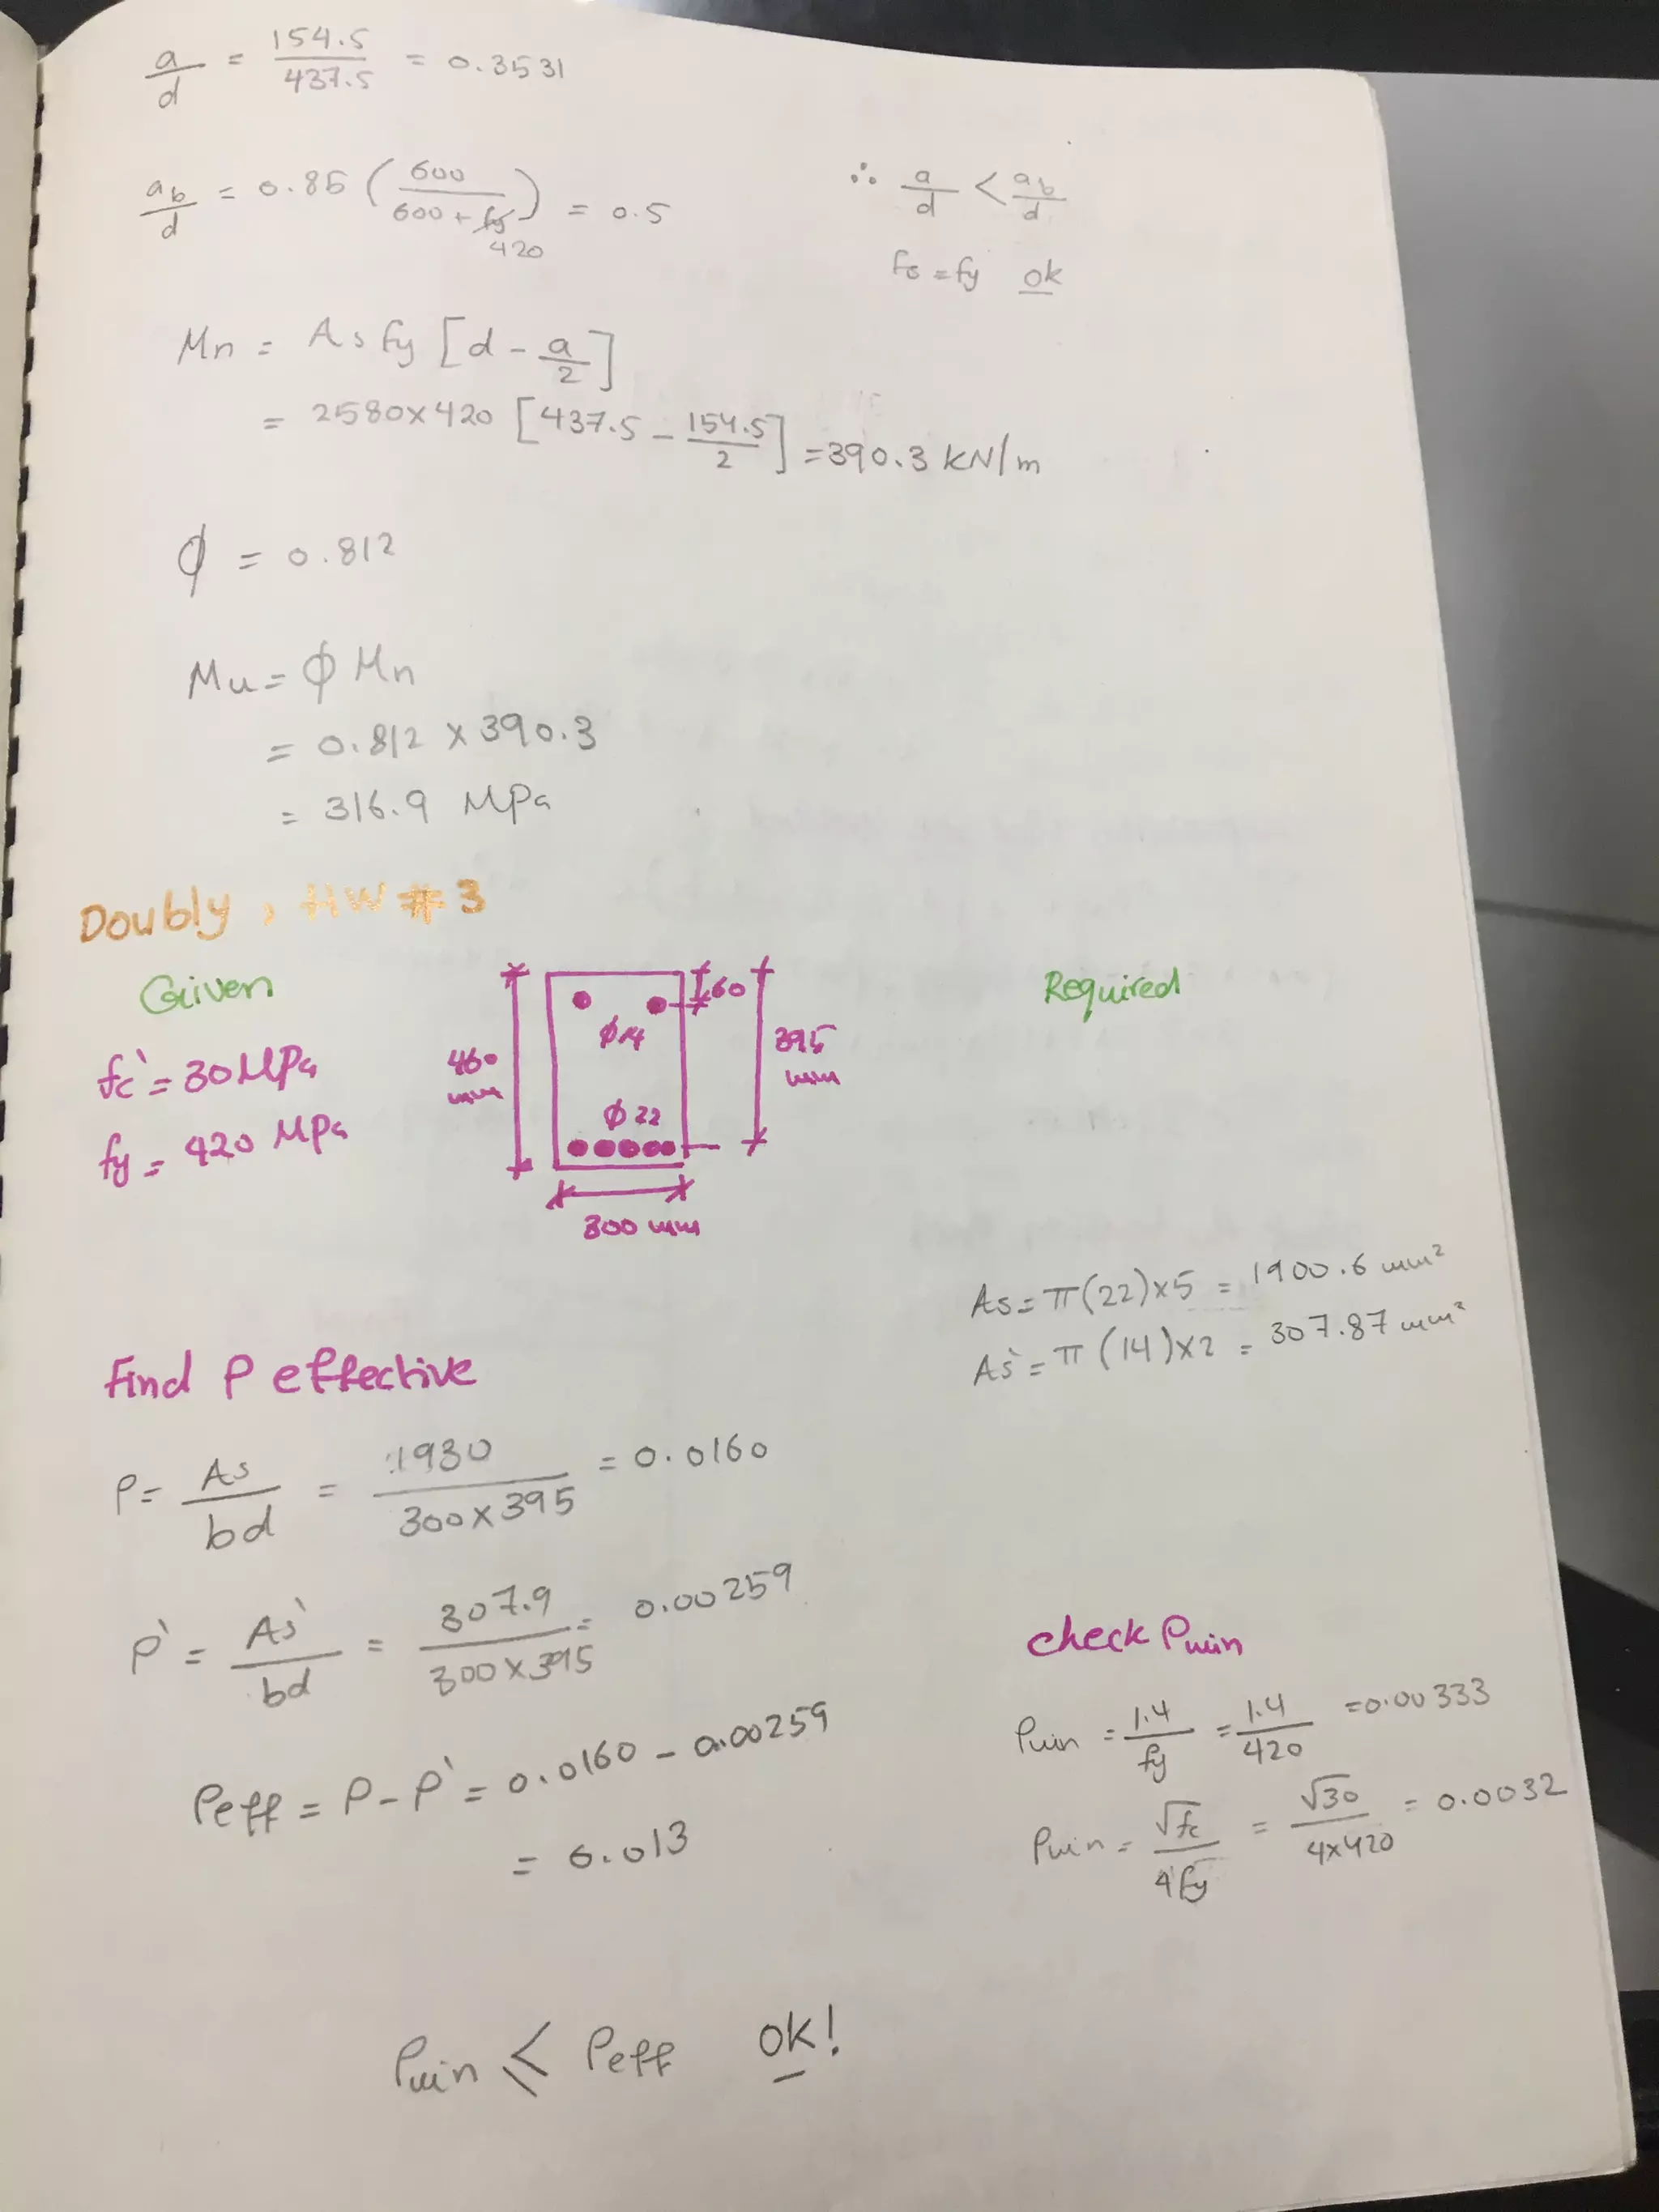 a/d = 154.5/437.5 = 0.3531
ab/d = 0.85 (600/(600 + fy 420)) = 0.5
∴ a/d < ab/d
fs = fy ok
Mn = As fy [d - a/2]
= 2580 x 420 [437.5 - 154.5/2] = 390.3 kN/m
ϕ = 0.812
Mu = ϕ Mn
= 0.812 x 390.3
= 316.9 MPa
Doubly, HW # 3
Given
Required
fc' = 30 MPa
fy = 420 MPa
460 mm
60
ϕ14
395 mm
ϕ 22
300 mm
As = π(22)x5 = 1900.6 mm²
As' = π (14)x2 = 307.87 mm²
Find ρ effective
ρ = As/bd = 1930/(300 x 395) = 0.0160
ρ' = As'/bd = 307.9/(300 x 395) = 0.00259
ρeff = ρ - ρ' = 0.0160 - 0.00259
= 0.013
check ρmin
ρmin = 1.4/fy = 1.4/420 = 0.00333
ρmin = √fc/4fy = √30/(4x420) = 0.0032
ρmin ⩽ ρeff ok!